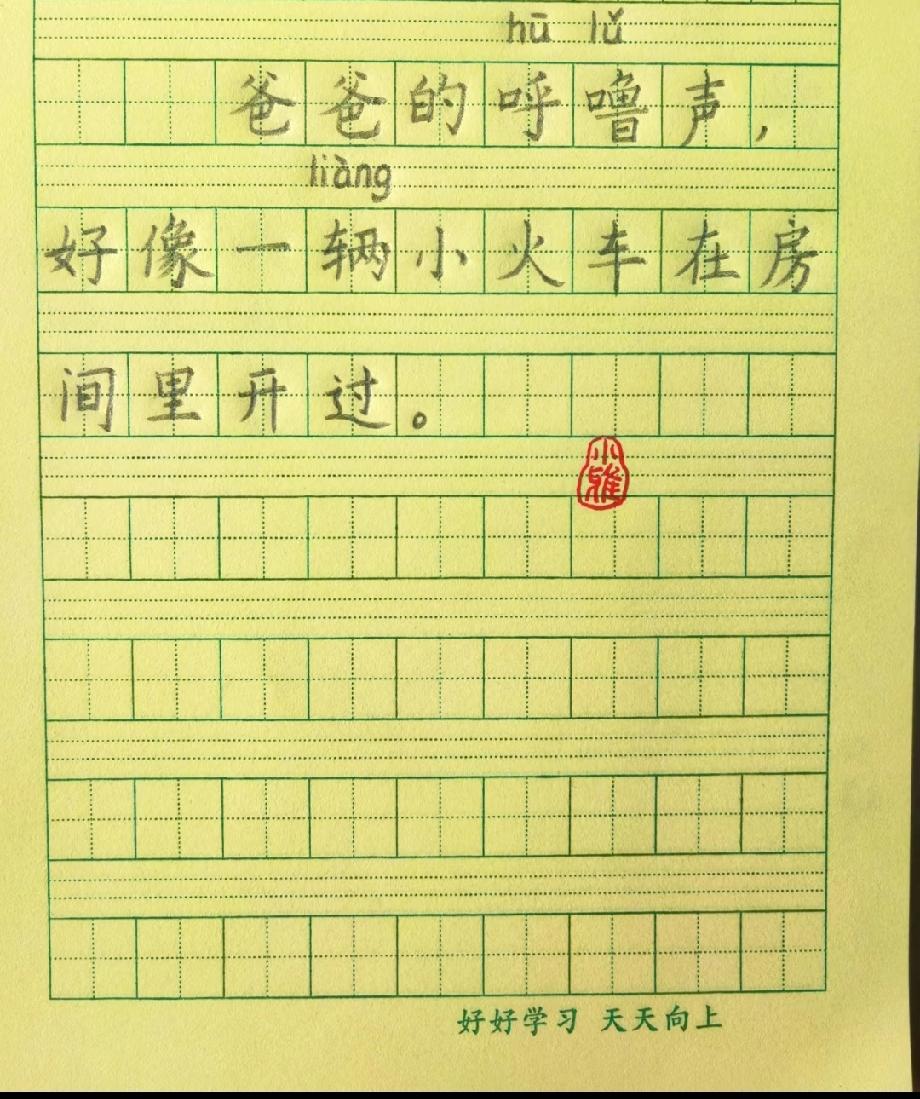 hū lǔ
爸爸的呼噜声，
liàng
好像一辆小火车在房
间里开过。
小雅
好好学习 天天向上